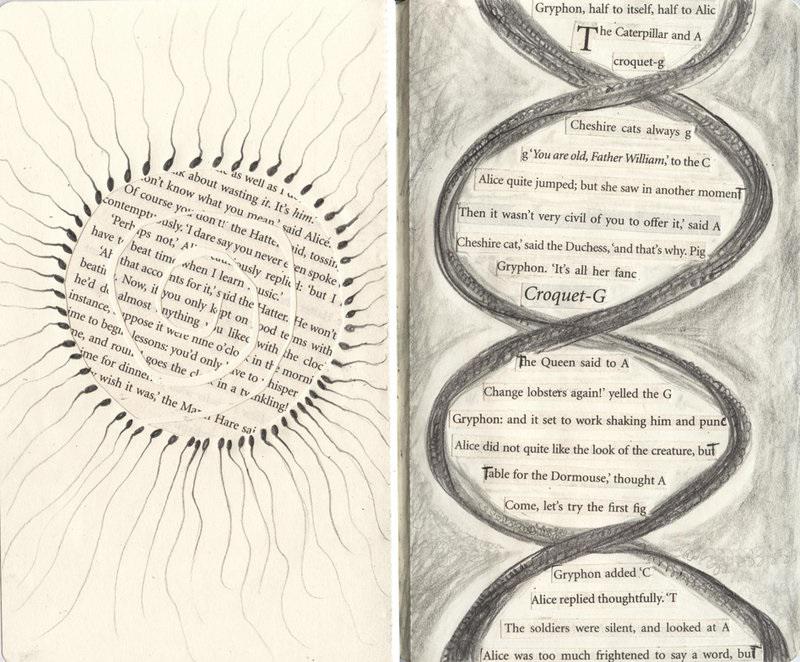 as well as I
k about wasting it. It's him.
on't know what you mean,' said Alice.
Of course you don't!' the Hatte id, tossin
contemptuously. 'I dare say you never even spoke
'Perhaps not,' Al usly replied: 'but I
have t beat time when I learn music.'
'Ah that accounts for it,' said the Hatter. He won't
beatin Now, if you only kept on good terms with
he'd do almost anything you liked with the cloc
instance, suppose it were nine o'clo in the morni
me to begin lessons: you'd only have to whisper
ne, and round goes the clock in a twinkling!
me for dinner
wish it was,' the March Hare sai
Gryphon, half to itself, half to Alic
The Caterpillar and A
croquet-g
Cheshire cats always g
g 'You are old, Father William,' to the C
Alice quite jumped; but she saw in another momenT
Then it wasn't very civil of you to offer it,' said A
Cheshire cat,' said the Duchess, 'and that's why. Pig
Gryphon. 'It's all her fanc
Croquet-G
The Queen said to A
Change lobsters again!' yelled the G
Gryphon: and it set to work shaking him and punC
Alice did not quite like the look of the creature, buT
Table for the Dormouse,' thought A
Come, let's try the first fig
Gryphon added 'C
Alice replied thoughtfully. 'T
The soldiers were silent, and looked at A
Alice was too much frightened to say a word, buT